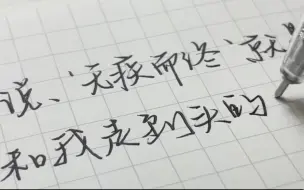 说、“无疾而终”就
和我走到头的